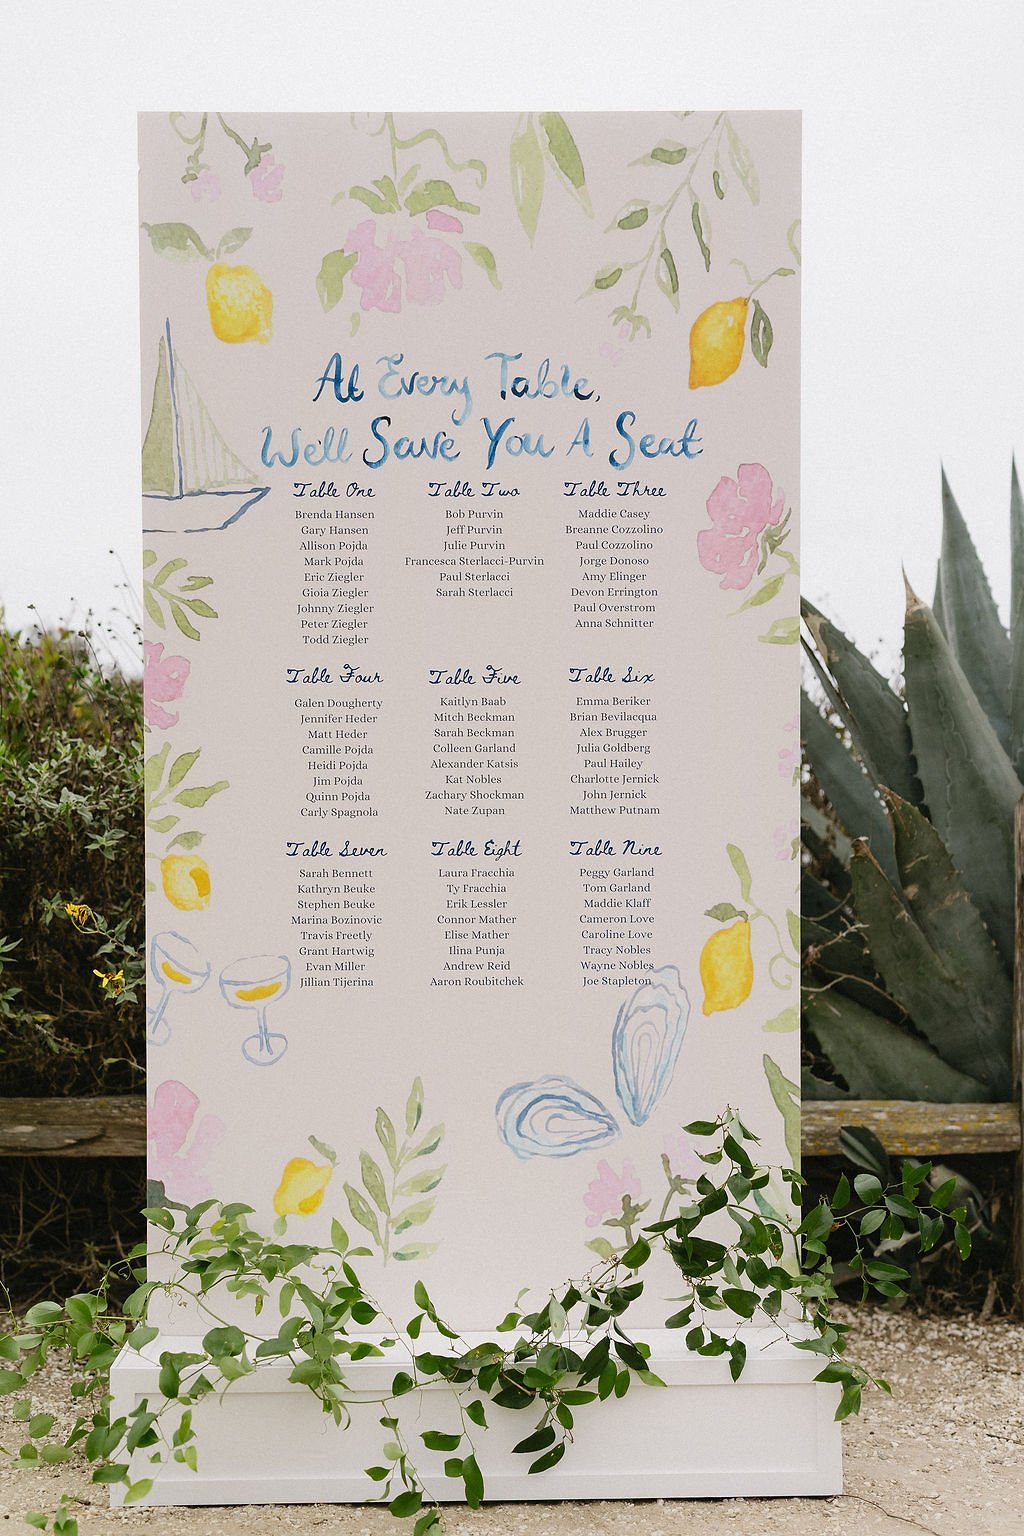 At Every Table,
We'll Save You A Seat
Table One
Brenda Hansen
Gary Hansen
Allison Pojda
Mark Pojda
Eric Ziegler
Gioia Ziegler
Johnny Ziegler
Peter Ziegler
Todd Ziegler
Table Two
Bob Purvin
Jeff Purvin
Julie Purvin
Francesca Sterlacci-Purvin
Paul Sterlacci
Sarah Sterlacci
Table Three
Maddie Casey
Breanne Cozzolino
Paul Cozzolino
Jorge Donoso
Amy Elinger
Devon Errington
Paul Overstrom
Anna Schnitter
Table Four
Galen Dougherty
Jennifer Heder
Matt Heder
Camille Pojda
Heidi Pojda
Jim Pojda
Quinn Pojda
Carly Spagnola
Table Five
Kaitlyn Baab
Mitch Beckman
Sarah Beckman
Colleen Garland
Alexander Katsis
Kat Nobles
Zachary Shockman
Nate Zupan
Table Six
Emma Beriker
Brian Bevilacqua
Alex Brugger
Julia Goldberg
Paul Hailey
Charlotte Jernick
John Jernick
Matthew Putnam
Table Seven
Sarah Bennett
Kathryn Beuke
Stephen Beuke
Marina Bozinovic
Travis Freetly
Grant Hartwig
Evan Miller
Jillian Tijerina
Table Eight
Laura Fracchia
Ty Fracchia
Erik Lessler
Connor Mather
Elise Mather
Ilina Punja
Andrew Reid
Aaron Roubitchek
Table Nine
Peggy Garland
Tom Garland
Maddie Klaff
Cameron Love
Caroline Love
Tracy Nobles
Wayne Nobles
Joe Stapleton